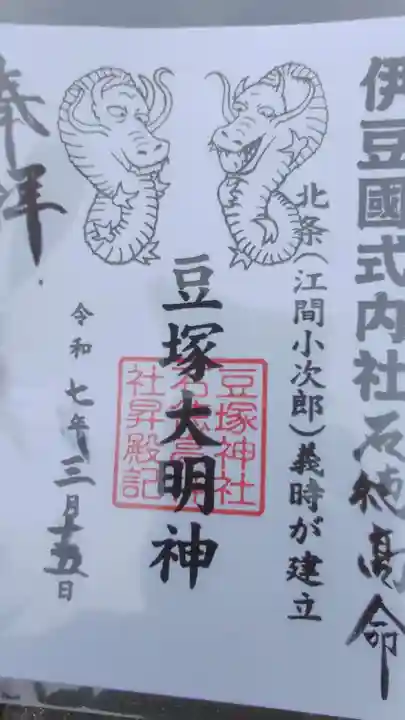 伊豆國式内社石徳高命
北条(江間小次郎)義時が建立
豆塚大明神
豆塚神社
社昇殿記
奉拝
令和七年三月十五日